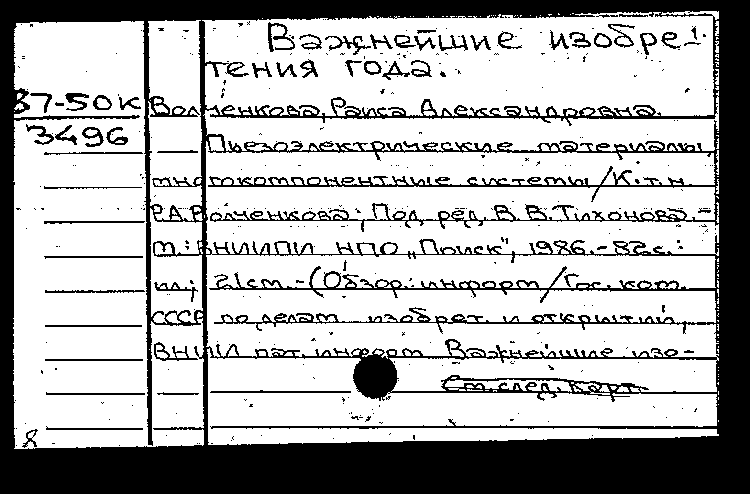 Важнейшие изобре-
тения года.
87-50К Волченкова, Раиса Александровна.
3496 Пьезоэлектрические материалы,
многокомпонентные системы / К.т.н.
Р.А.Волченкова; Под ред. В. В. Тихонова.-
М.: ВНИИПИ НПО „Поиск", 1986.-82с.:
ил.; 21см.-(Обзор. информ / Гос. ком.
СССР по делам изобрет. и открытий,
ВНИИ пат. информ Важнейшие изо-
См. след. карт.
8